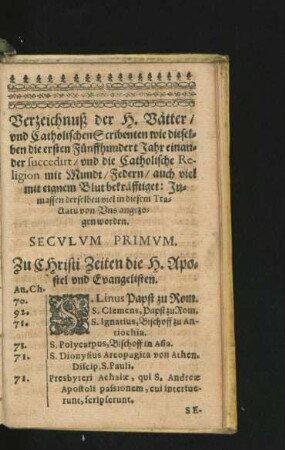 Verzeichnuß der H. Vätter/
vnd Catholischen Scribenten wie diesel-
ben die ersten Fünffhundert Jahr einan-
der succedirt/ vnd die Catholische Re-
ligion mit Mundt/ Federn/ auch viel
mit eignem Blut bekräfftiget: In-
massen derselben viel in diesem Tra-
ctatu von Vns angezo-
gen worden.
SECVLVM PRIMVM.
Zu CHristi Zeiten die H. Apo-
stel vnd Evangelisten.
An. Ch.
70. S. Linus Papst zu Rom.
92. S. Clemens, Papst zu Rom.
71. S. Ignatius, Bischoff zu An-
tiochia.
71. S. Polycarpus, Bischoff in Asia.
71. S. Dionysius Areopagita von Athen.
Discip. S. Pauli.
71. Presbyteri Achaiæ, qui S. Andreæ
Apostoli passionem, cui interfue-
runt, scripserunt.
SE-